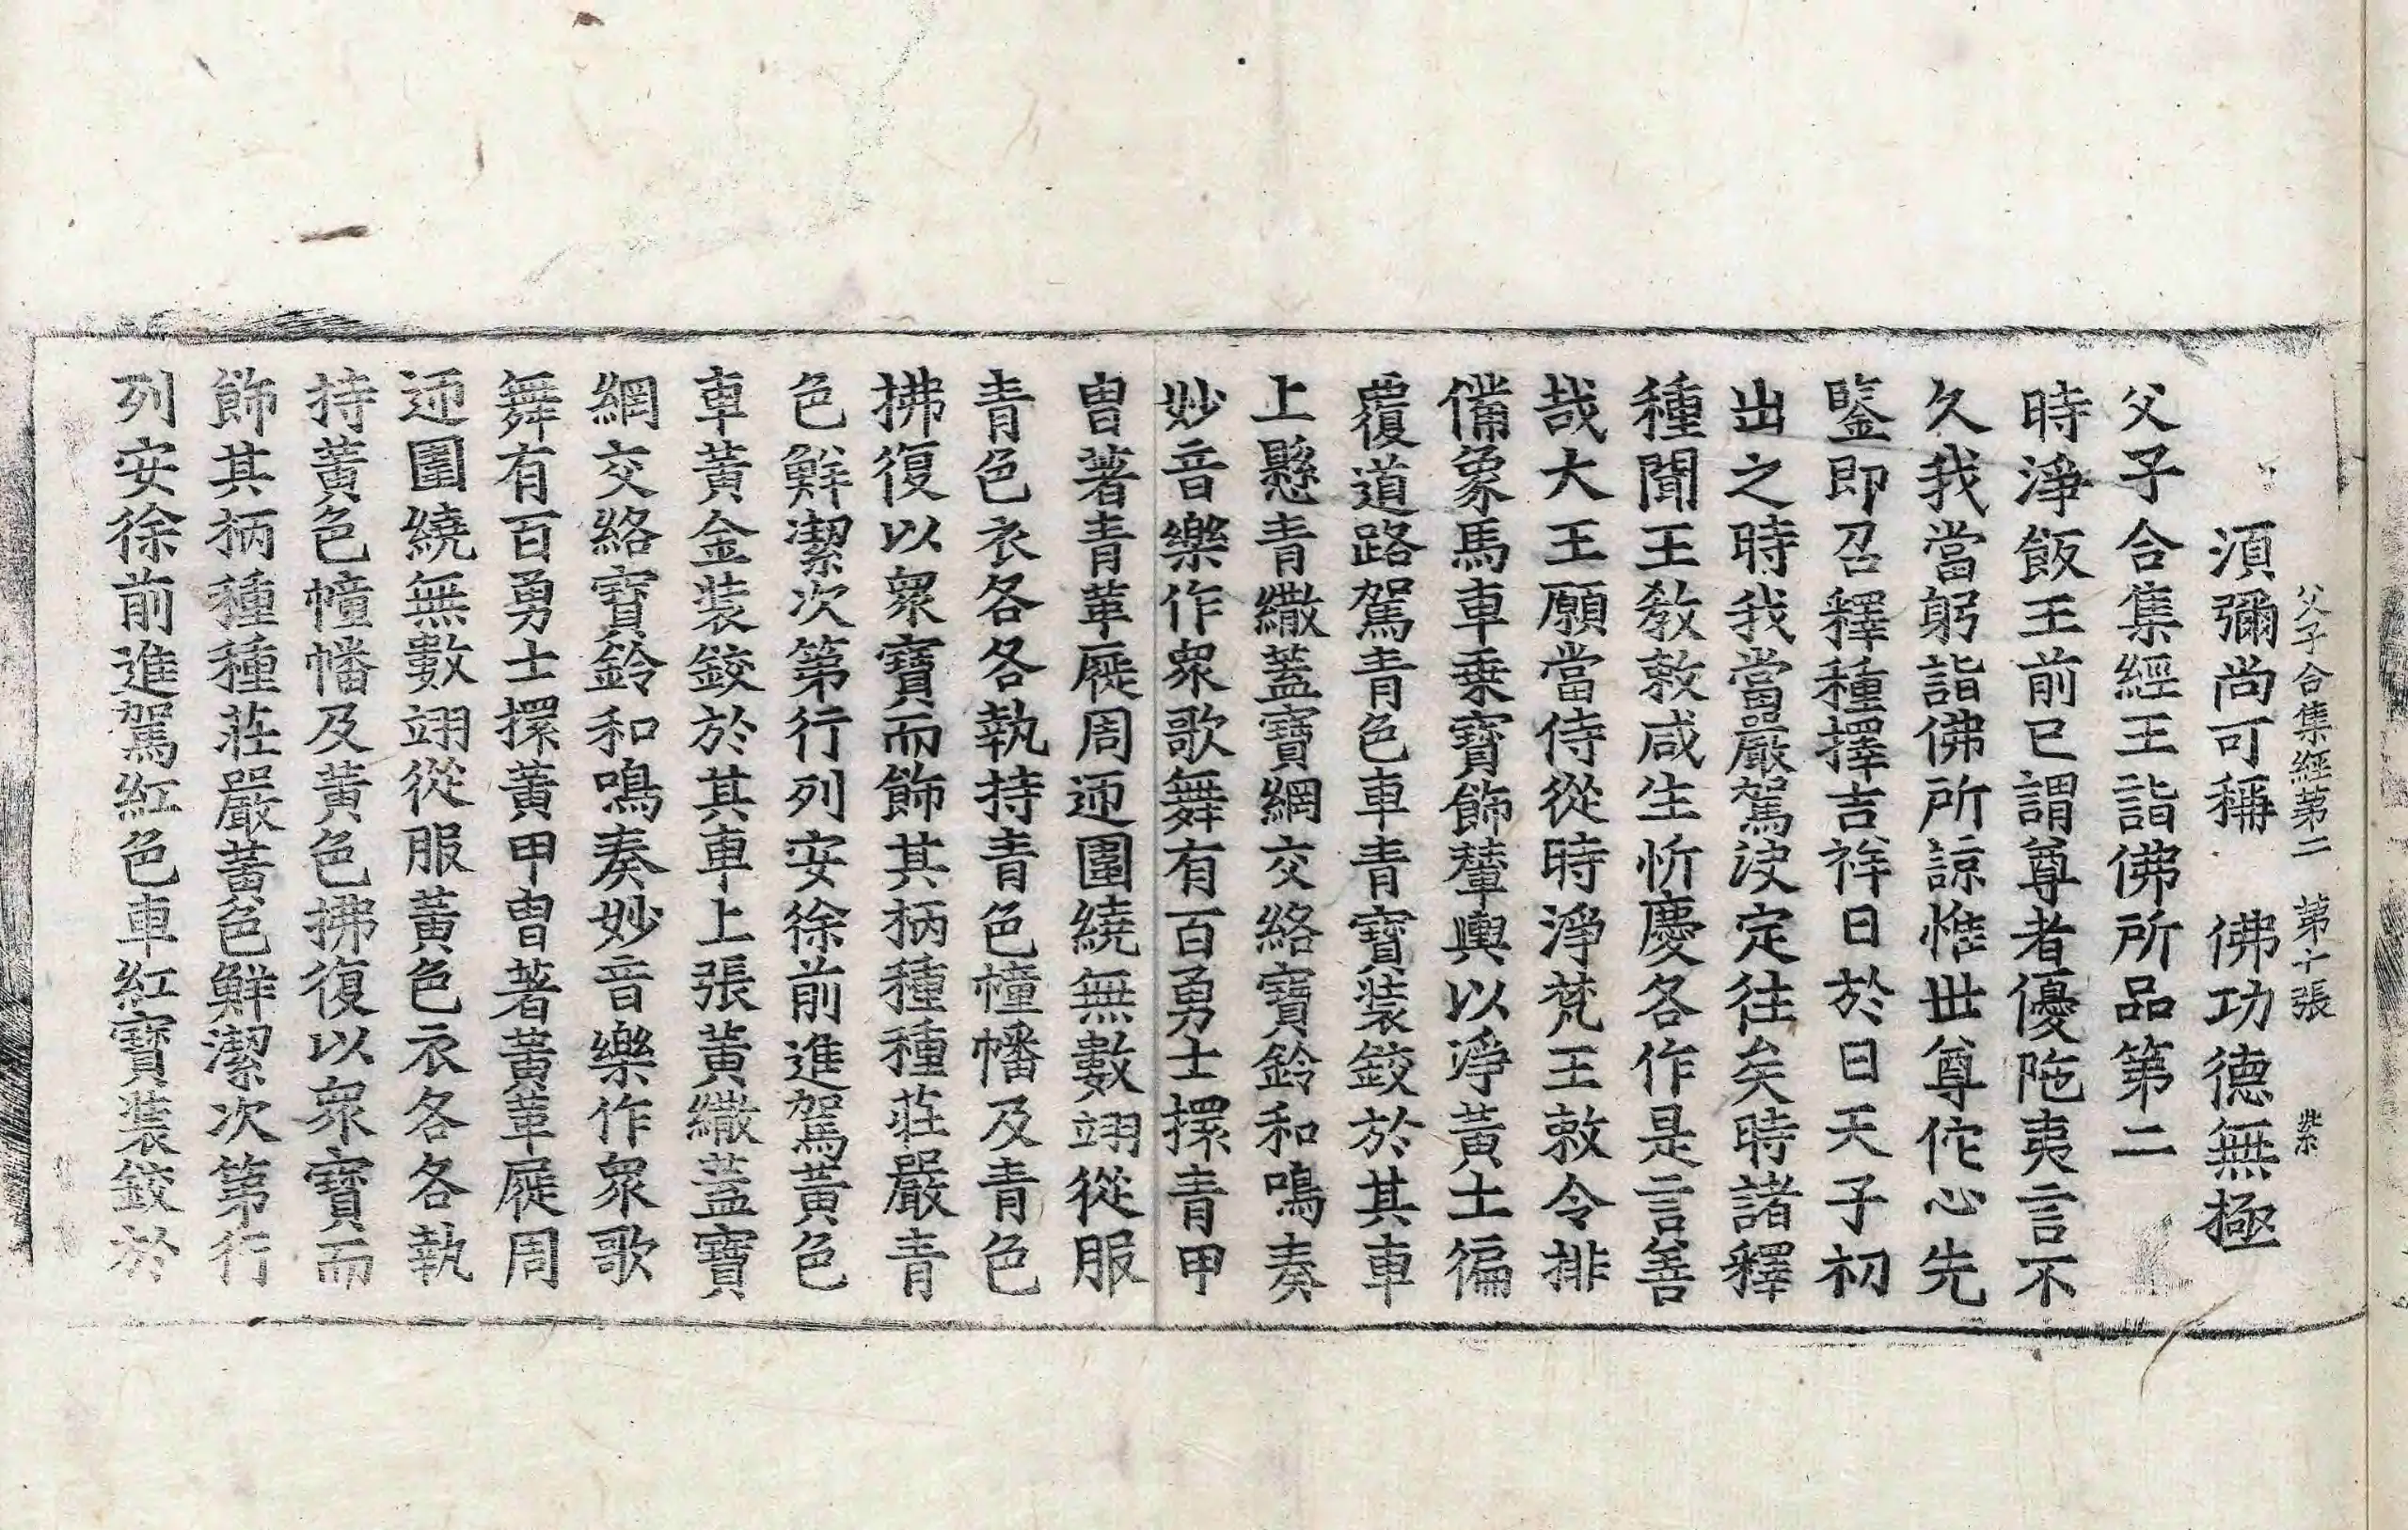 父子合集經第二 第十張 紫
須彌尚可稱 佛功德無極
父子合集經王詣佛所品第二
時淨飯王前已謂尊者優陁夷言不
久我當躬詣佛所諒惟世尊佗心先
鑒即召釋種擇吉祥日於日天子初
出之時我當嚴駕決定往矣時諸釋
種聞王教敕咸生忻慶各作是言善
哉大王願當侍從時淨梵王敕令排
備象馬車乗寶飾輦輿以淨黃土徧
覆道路駕青色車青寶裝鉸於其車
上懸青繖蓋寶網交絡寶鈴和鳴奏
妙音樂作衆歌舞有百勇士擐青甲
胄著青革屣周迊圍繞無數翊從服
青色衣各各執持青色幢幡及青色
拂復以衆寶而飾其柄種種莊嚴青
色鮮潔次第行列安徐前進駕黃色
車黃金裝鉸於其車上張黃繖蓋寶
網交絡寶鈴和鳴奏妙音樂作衆歌
舞有百勇士擐黃甲胄著黃革屣周
迊圍繞無數翊從服黃色衣各各執
持黃色幢幡及黃色拂復以衆寶而
飾其柄種種莊嚴黃色鮮潔次第行
列安徐前進駕紅色車紅寶裝鉸於